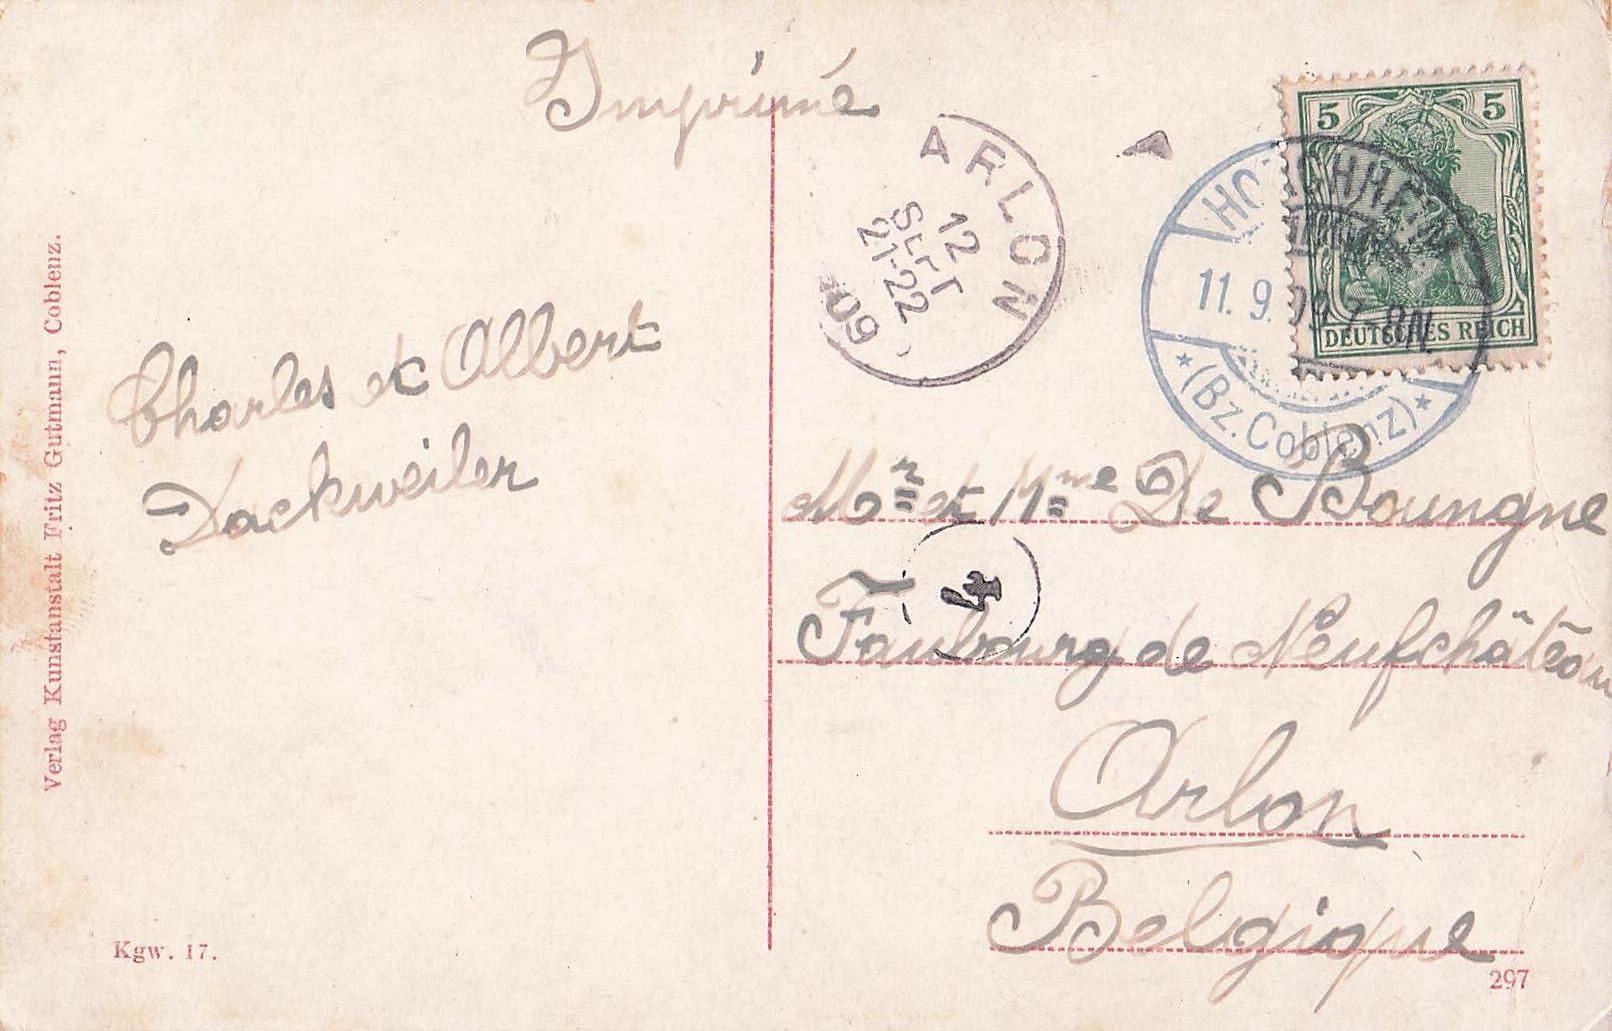 Imprimé
ARLON
12
SEPT
21-22
09
5 5
DEUTSCHES REICH
HORCHHEIM
11.9.09.7-8N.
*(Bz. Coblenz)*
Verlag Kunstanstalt Fritz Gutmann, Coblenz.
Charles et Albert
Dackweiler
Mr et Mme De Boungne
4
Faubourg de Neufchâteau
Arlon
Belgique
Kgw. 17.
297